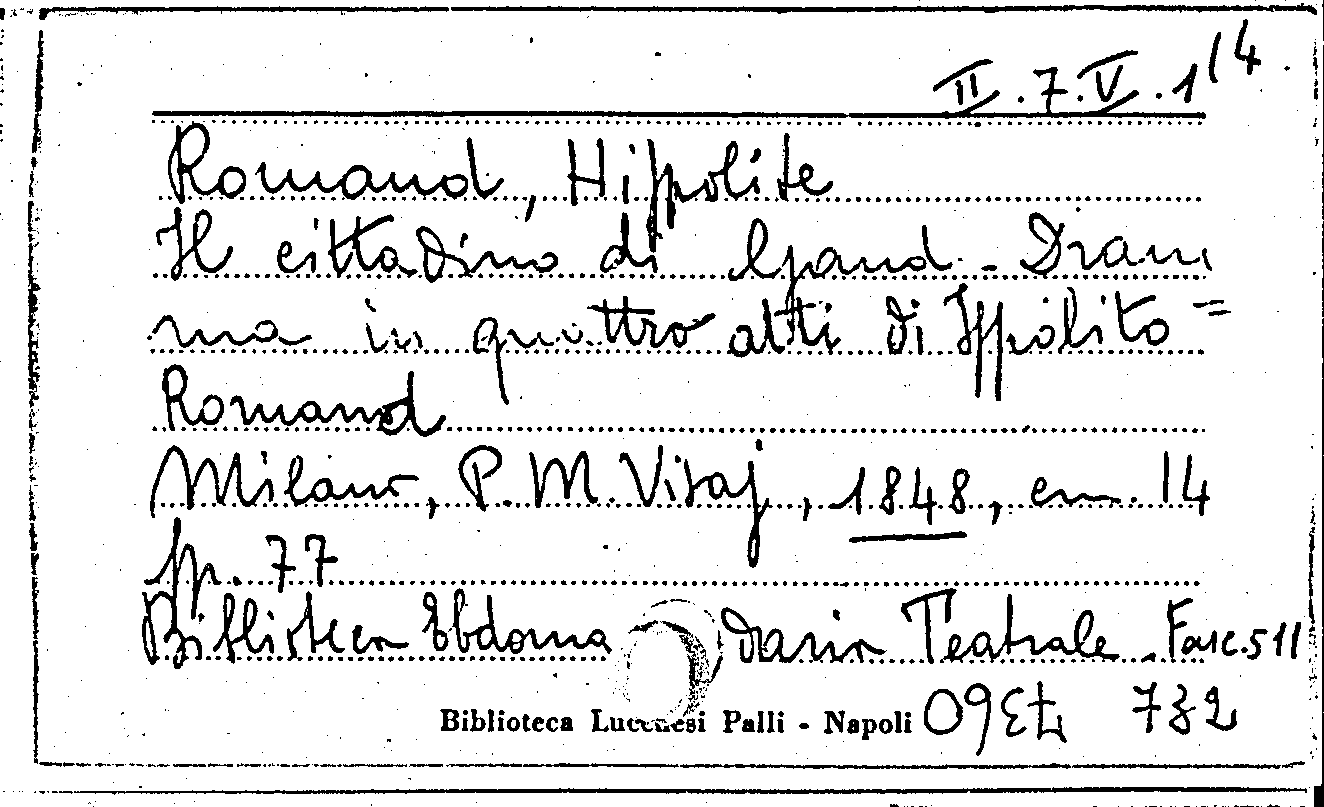 II.7.V.1/4
Romand, Hippolite
Il cittadino di Gand - Dram
ma in quattro atti di Ippolito =
Romand
Milano, P. M. Visaj, 1848, cm. 14
pp. 77
Biblioteca Ebdomadaria Teatrale. Fasc. 511
Biblioteca Lucchesi Palli - Napoli